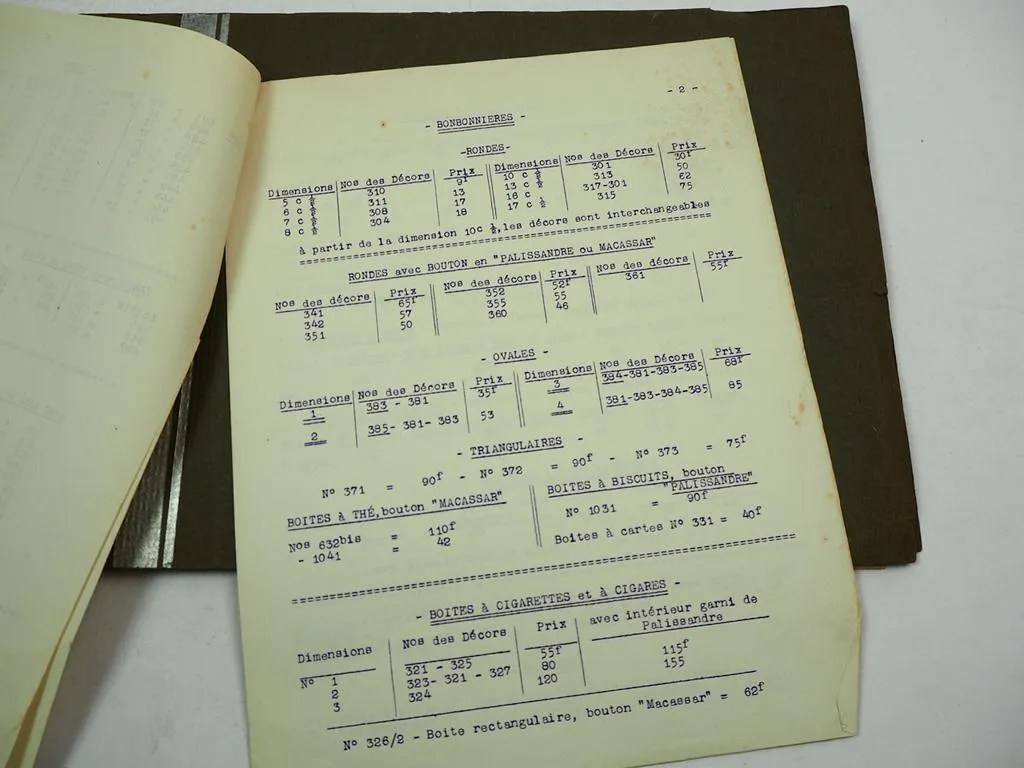 - 2 -
- BONBONNIERES -
-RONDES-
Dimensions Nos des Décors Prix Dimensions Nos des Décors Prix
5 c ½ 310 9f 10 c ½ 301 30f
6 c ½ 311 13 13 c ½ 313 50
7 c ½ 308 17 16 c 317-301 62
8 c ½ 304 18 17 c ½ 315 75
à partir de la dimension 10c ½, les décors sont interchangeables
RONDES avec BOUTON en "PALISSANDRE ou MACASSAR"
Nos des décors Prix Nos des décors Prix Nos des décors Prix
341 65f 352 52f 361 55f
342 57 355 55
351 50 360 46
- OVALES -
Dimensions Nos des Décors Prix Dimensions Nos des Décors Prix
1 383 - 381 35f 3 384-381-383-385 68f
2 385- 381- 383 53 4 381-383-384-385 85
- TRIANGULAIRES -
N° 371 = 90f - N° 372 = 90f - N° 373 = 75f
BOITES à THÉ, bouton "MACASSAR"
Nos 632bis = 110f
- 1041 = 42
BOITES à BISCUITS, bouton
"PALISSANDRE"
N° 1031 = 90f
Boites à cartes N° 331 = 40f
- BOITES à CIGARETTES et à CIGARES -
Dimensions Nos des Décors Prix avec intérieur garni de
Palissandre
N° 1 321 - 325 55f 115f
2 323- 321 - 327 80 155
3 324 120
N° 326/2 - Boite rectangulaire, bouton "Macassar" = 62f